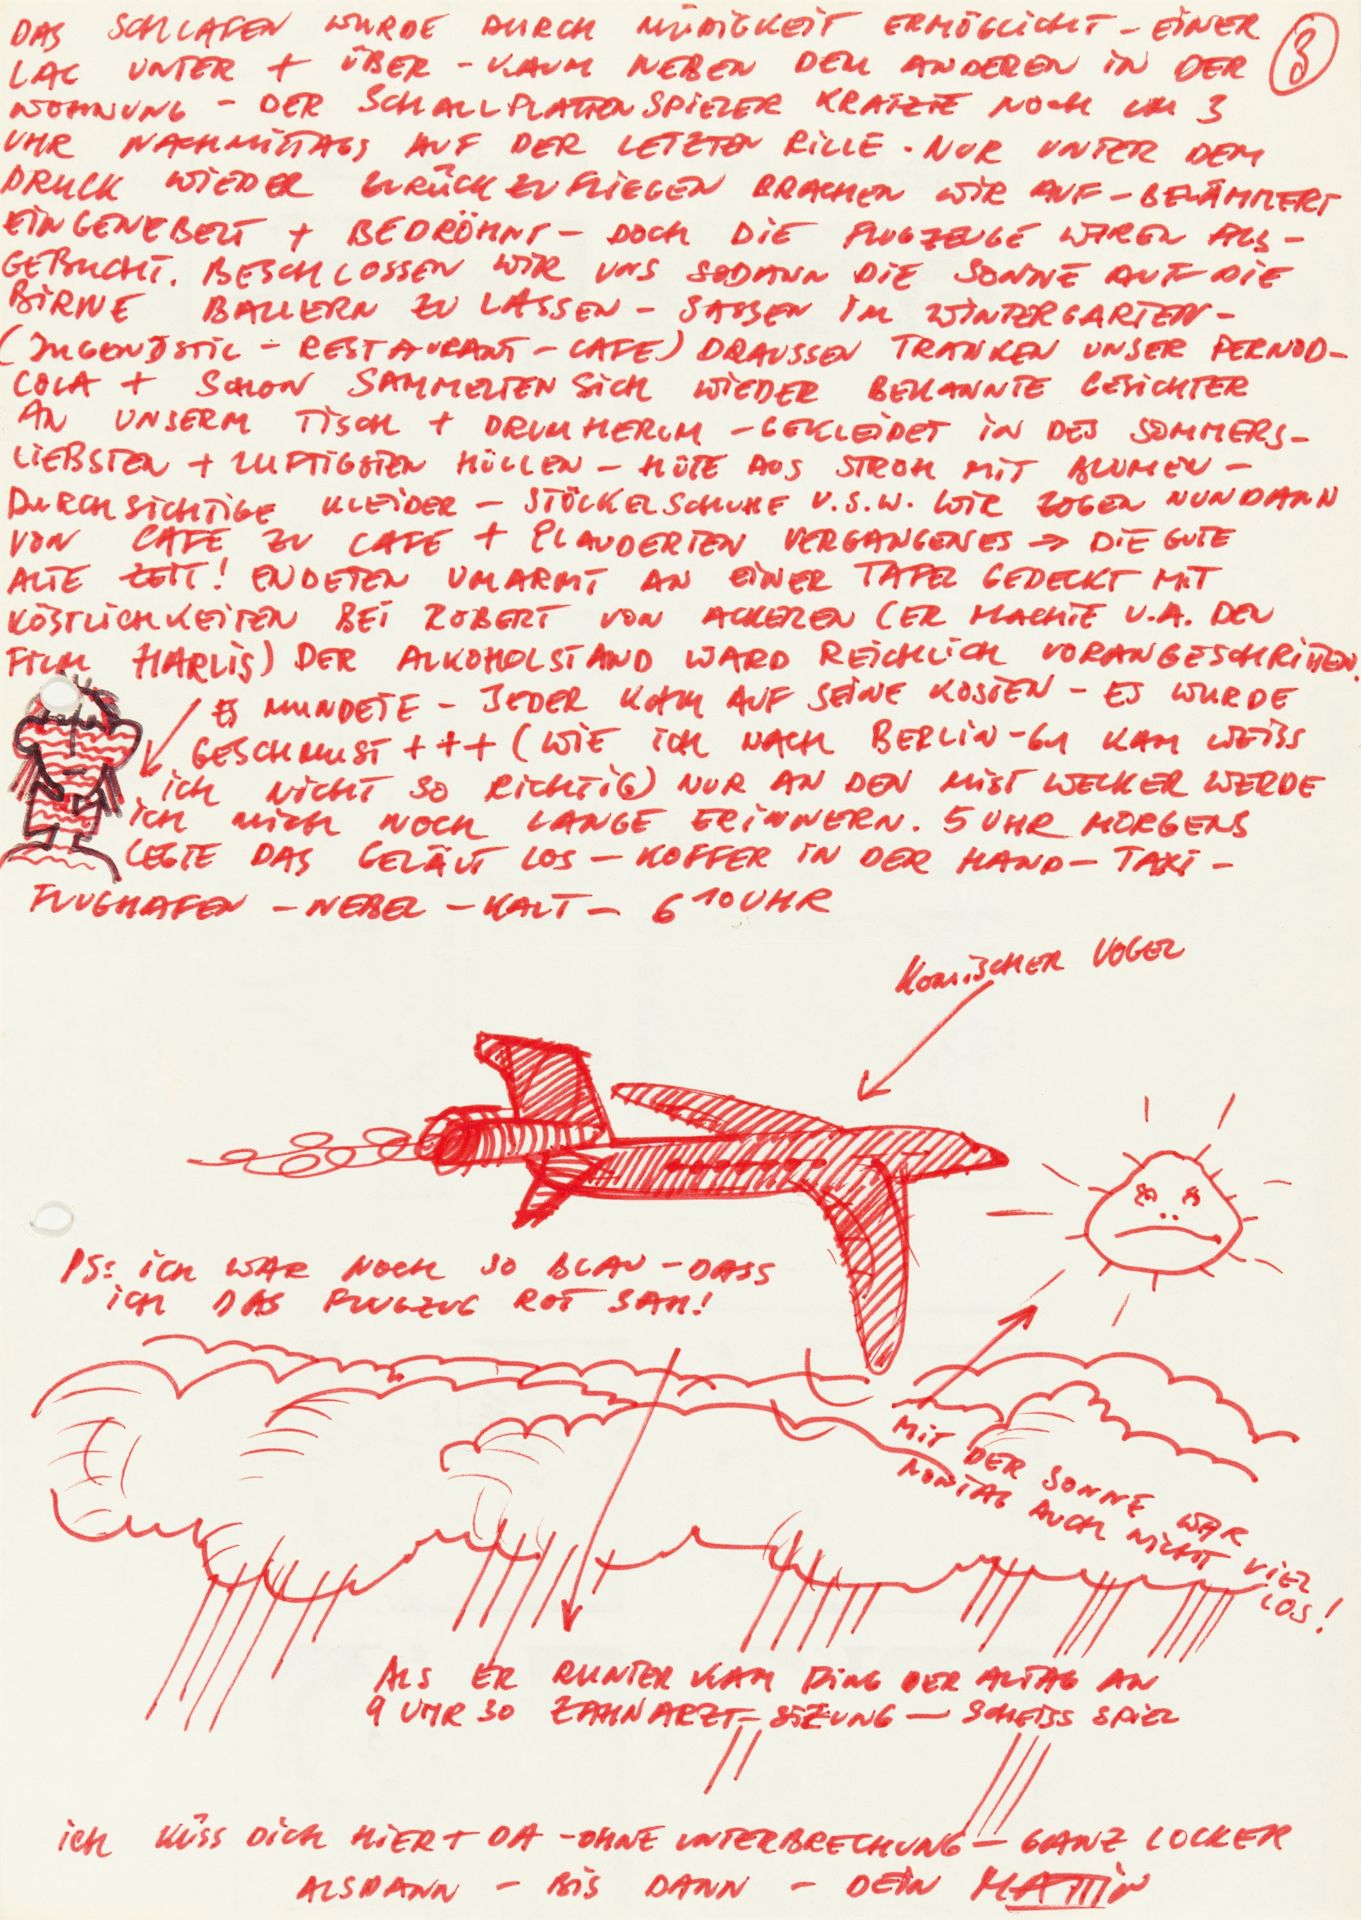 DAS SCHLAFEN WURDE DURCH MÜDIGKEIT ERMÖGLICHT – EINER
LAG UNTER + ÜBER – KAUM NEBEN DEM ANDEREN IN DER
3
WOHNUNG – DER SCHALLPLATTENSPIELER KRATZTE NOCH UM 3
UHR NACHMITTAGS AUF DER LETZTEN RILLE. NUR UNTER DEM
DRUCK WIEDER ZURÜCKZUFLIEGEN BRACHEN WIR AUF – BELÄMMERT
EINGENEBELT + BEDRÖHNT – DOCH DIE FLUGZEUGE WAREN AUS-
GEBUCHT. BESCHLOSSEN WIR UNS SODANN DIE SONNE AUF DIE
BIRNE BALLERN ZU LASSEN – SASSEN IM WINTERGARTEN –
(JUGENDSTIL – RESTAURANT – CAFE) DRAUSSEN TRANKEN UNSER PERNOD-
COLA + SCHON SAMMELTEN SICH WIEDER BEKANNTE GESICHTER
AN UNSERM TISCH + DRUMHERUM – GEKLEIDET IN DES SOMMERS-
LIEBSTEN + LUFTIGSTEN HÜLLEN – HÜTE AUS STROH MIT BLUMEN –
DURCHSICHTIGE KLEIDER – STÖCKELSCHUHE U.S.W. WIR ZOGEN NUN DANN
VON CAFE ZU CAFE + PLAUDERTEN VERGANGENES → DIE GUTE
ALTE ZEIT! ENDETEN UMARMT AN EINER TAFEL GEDECKT MIT
KÖSTLICHKEITEN BEI ROBERT VON ACKEREN (ER MACHTE U.A. DEN
FILM HARLIS) DER ALKOHOLSTAND WARD REICHLICH VORANGESCHRITTEN.
ES MUNDETE – JEDER KAM AUF SEINE KOSTEN – ES WURDE
GESCHMUST +++ (WIE ICH NACH BERLIN-61 KAM WEISS
ICH NICHT SO RICHTIG) NUR AN DEN MIST WECKER WERDE
ICH MICH NOCH LANGE ERINNERN. 5 UHR MORGENS
LEGTE DAS GELÄUT LOS – KOFFER IN DER HAND – TAXI –
FLUGHAFEN – NEBEL – KALT – 6 10 UHR
KOMISCHER VOGEL
PS: ICH WAR NOCH SO BLAU – DASS
ICH DAS FLUGZUG ROT SAH!
MIT DER SONNE WAR
MONTAG AUCH NICHT VIEL
LOS!
ALS ER RUNTER KAM FING DER ALTAG AN
9 UHR SO ZAHNARZT-SITZUNG – SCHEISS SPIEL
ICH KÜSS DICH HIER + DA – OHNE UNTERBRECHUNG – GANZ LOCKER
ALSDANN – BIS DANN – DEIN MARTIN